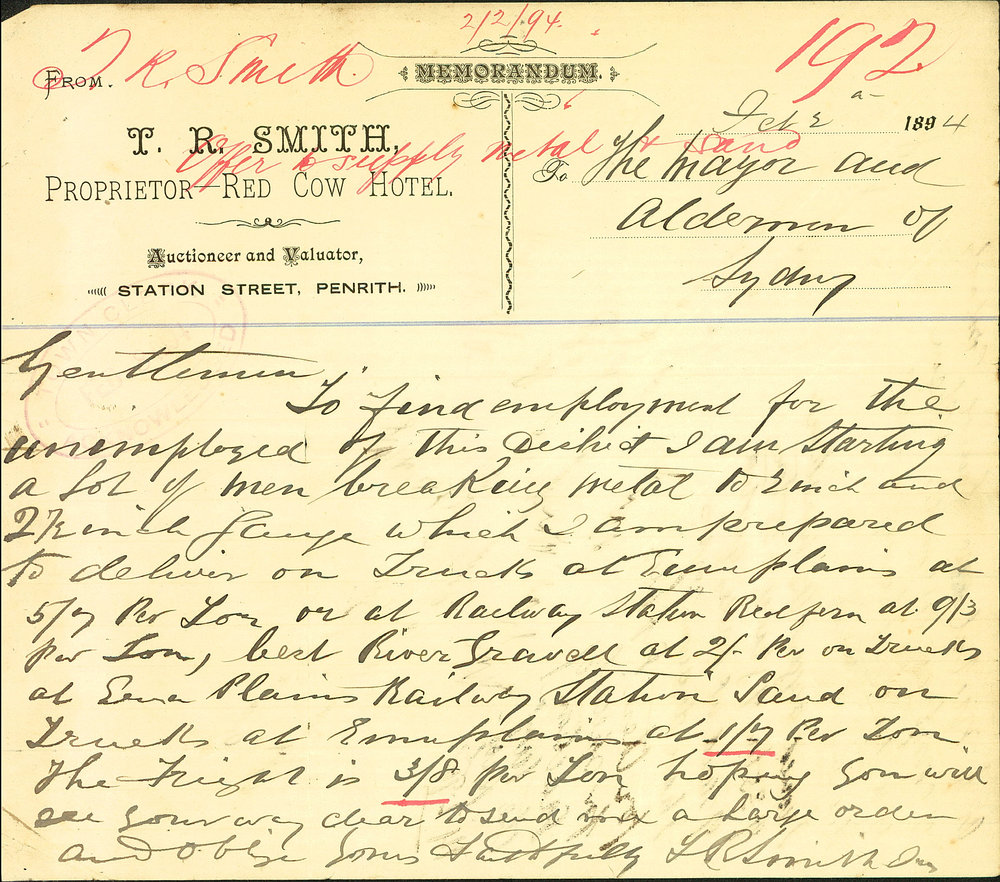 2/2/94.
T. R. Smith.
192
FROM.
MEMORANDUM.
Feb 2 1894
T. R. SMITH,
Offer to supply metal & sand
PROPRIETOR—RED COW HOTEL.
Auctioneer and Valuator,
STATION STREET, PENRITH.
To The Mayor and
Aldermen of
Sydney
TOWN CL
Gentlemen
To find employment for the
unemployed of this District I am Starting
a Lot of men breaking metal to 2 inch and
2½ inch Gauge which I am prepared
to deliver on Trucks at Emuplains at
5/7 Per Ton or at Railway Station Redfern at 9/3
per Ton, best River Gravell at 2/- Per on Trucks
at Emu Plains Railway Station Sand on
Trucks at Emuplains at 1/7 Per Ton
The Frieght is 3/8 per Ton hoping you will
see your way clear to send me a Large order
and oblige yours Faithfully T R Smith